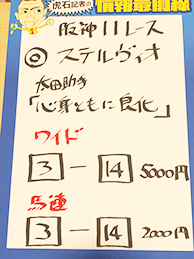 虎石記者の情報最前線
阪神11レース
◎ステルヴィオ
太田助手
「心身ともに良化」
ワイド
3-14 5000円
馬連
3-14 2000円